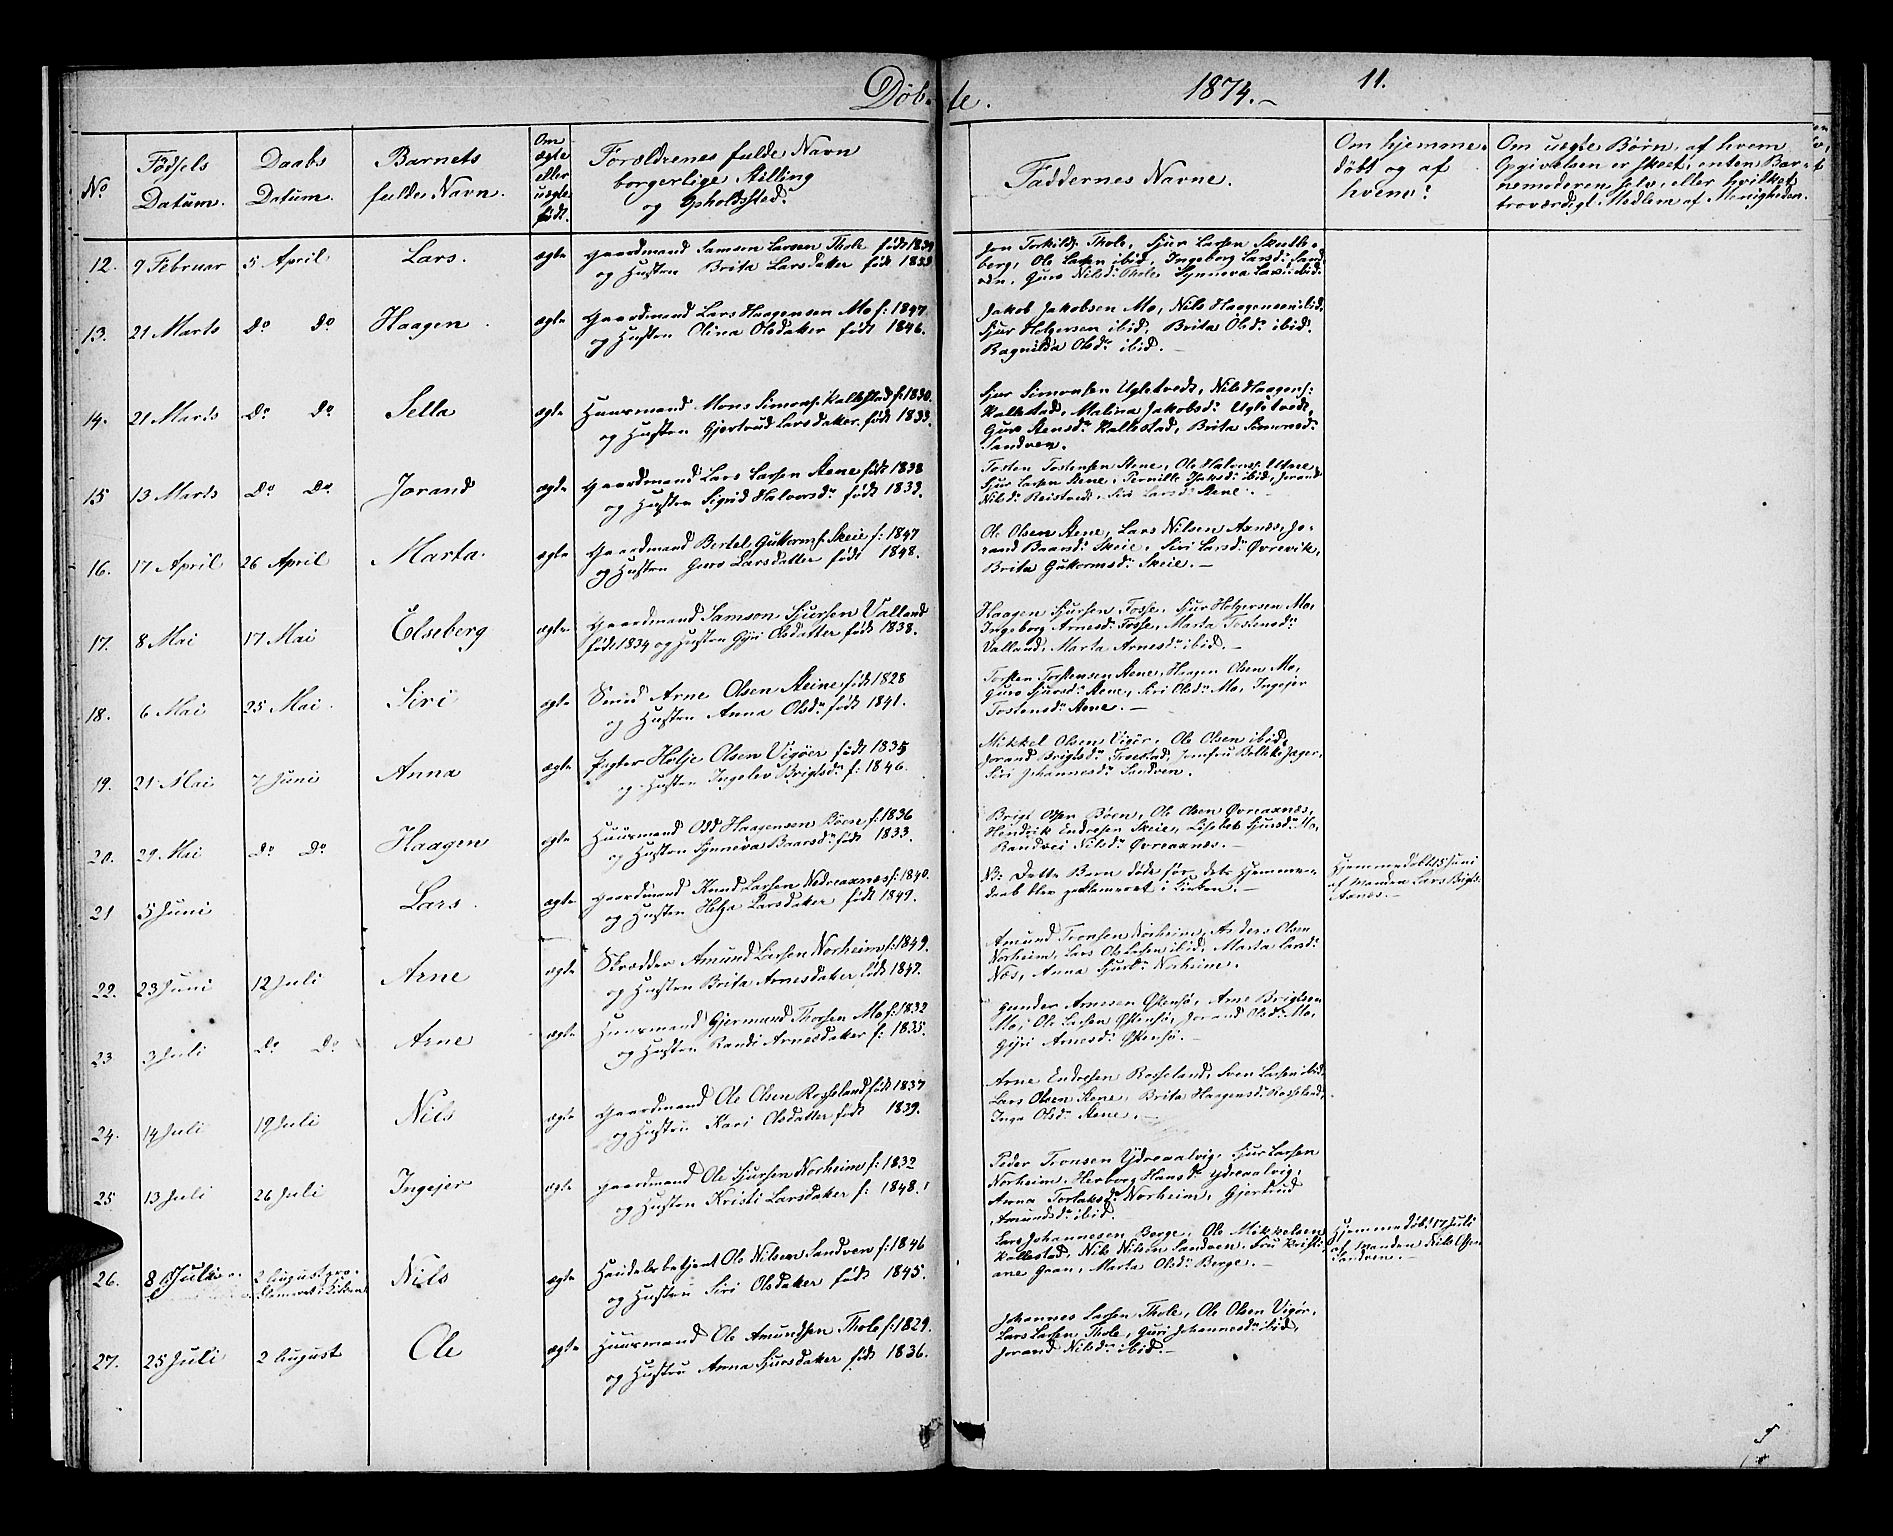 Døbte. 1874.- 11.
No
Fødsels Datum.
Daabs Datum.
Barnets fulde Navn.
Om ægte eller uægte født.
Forældrenes fulde Navn borgerlige Stilling og Opholdssted.
Faddernes Navne.
Om hjemmedøbt og af hvem?
Om uægte Børn, af hvem Opgivelsen er skeet, enten Barnemoderen selv, eller hvilket troværdigt Medlem af Menigheden.
12. 9 Februar 5 April Lars. ægte Gaardmand Samson Larsen Thole født 1839
og Hustru Brita Larsdatter født 1833
Jon Torkilds. Thole, Sjur Larsen Skutle-
berg, Ole Larsen ibid, Ingeborg Larsd: Sand
ven, Guro Nilsd: Thole, Synneva Larsd: ibid.
13. 21 Marts Do Do Haagen. ægte Gaardmand Lars Haagensen Mo f: 1847.
og Hustru Olina Olsdatter født 1846.
Jakob Jakobsen Mo, Nils Haagensen ibid,
Sjur Holgersen ibid, Brita Olsd: ibid.
Ragnilda Olsd: ibid.-
14. 21 Marts Do Do Sella ægte Huusmand Mons Simons. Kallestad f: 1830.
og Hustru Gjertrud Larsdatter født 1833.
Sjur Simonsen Ugletvedt, Nils Haagens:
Kallestad, Malina Jakobsd: Ugletvedt,
Guro Stensd: Kallestad, Brita Simonsd:
Sandven.
15 13 Marts Do Do Jorand ægte Gaardmand Lars Larsen Stene født 1838
og Hustru Sigrid Halvorsd: født 1833.
Tosten Tostensen Stene, Ole Halvors: Utne
Sjur Larsen Stene, Pernille Isaksd: ibid, Jorand
Nilsd: Reistvedt, Siri Larsd: Stene.
16. 17 April 26 April Marta. ægte Gaardmand Bertel Guttorms. Skeie f: 1847
og Hustru Guro Larsdatter født 1848.
Ole Olsen Stene, Lars Nilsen Axnæs, Jo-
rand Baarsd: Skeie, Siri Larsd: Øvrevik,
Brita Guttormsd: Skeie.-
17. 8 Mai 17 Mai Elseberg ægte Gaardmand Samson Sjursen Valland
født 1834 og Hustru Gyri Olsdatter født 1838.
Haagen Sjursen Fosse, Sjur Holgersen Mo,
Ingeborg Arnesd: Fosse, Marta Tostensd:
Valland, Marta Arnesd: ibid.-
18. 6 Mai 25 Mai. Siri ægte Smed Arne Olsen Steine født 1828
og Hustru Anna Olsd: født 1841.
Torsten Torstensen Stene, Haagen Olsen Mo,
Guro Sjursd: Stene, Siri Olsd: Mo, Ingejer
Tostensd: Stene.-
19. 21 Mai 7 Juni Anna ægte Pagter Holje Olsen Vigøer født 1835
og Hustru Ingelev Brigtsd: f: 1846.
Mikkel Olsen Vigør, Ole Olsen ibid,
Jorand Brigtsd: Froestad, Jomfru Bolleke Jæger,
Siri Johannesd: Sandven.
20. 29 Mai Do Do Haagen ægte Huusmand Odd Haagensen Børen f: 1836
og Hustru Synneva Baarsd: født 1833.
Brigt Olsen Børen, Ole Olsen Øvreaxnæs,
Hendrik Endresen Skeie, Lisebet Sjursd: Mo,
Randvei Nilsd: Øvreaxnæs.-
21 5 Juni Lars. ægte Gaardmand Knud Larsen Nedreaxnæs f: 1840.
og Hustru Helga Larsdatter født 1849.
NB: Dette Barn døde før dets Hjemme-
daab blev proklameret i Kirken.-
Hjemmedøbt 5 Juni
af Manden Lars Brigts.
Axnæs.-
22. 23 Juni 12 Juli Arne ægte Skrædder Amund Larsen Norheim f: 1849.
og Hustru Brita Arnesdatter født 1847.
Amund Tronsen Norheim, Anders Olsen
Norheim, Lars Ols. Larsen ibid, Marta Larsd:
Næs, Anna Sjursd: Norheim.
23 3 Juli Do Do Arne ægte Huusmand Gjermund Thorsen Mo f: 1832
og Hustru Randi Arnesdatter f: 1835.
Gunder Arnesen Østensø, Arne Brigtsen
Mo, Ole Larsen Østensø, Jorand Olsd: Mo,
Gyri Arnesd: Østensø.-
24. 14 Juli 19 Juli Nils ægte Gaardmand Ole Olsen Rosseland født 1837
og Hustru Kari Olsdatter født 1839.
Arne Endresen Rosseland, Sven Larsen ibid,
Lars Olsen Stene, Brita Haagensd: Rosseland,
Inga Olsd: Stene.-
25 13 Juli 26 Juli Ingejer ægte Gaardmand Ole Sjursen Norheim f: 1832
og Hustru Kristi Larsdatter f: 1848.
Peder Tronsen Ydreaalvig, Sjur Larsen
Norheim, Herborg Hansd: Ydreaalvig,
Anna Torlaksd: Norheim, Gjertrud
Amundsd: ibid.
26. 8 Juli 2 August pro-
klameret i Kirken Nils ægte Handelsbetjent Ole Nilsen Sandven f: 1846
og Hustru Siri Olsdatter født 1845.
Lars Johannesen Berge, Ole Mikkelsen
Kallestad, Nils Nilsen Sandven, Fru Kristi-
ane Gran, Marta Olsd: Berge.-
Hjemmedøbt 17 Juli
af Manden Nils Olsen
Sandven.-
27. 25 Juli 2 August Ole ægte Huusmand Ole Amundsen Thole f: 1829.
og Hustru Anna Sjursdatter født 1836.
Johannes Larsen Thole, Ole Olsen Vigør,
Lars Larsen Thole, Guri Johannesd: ibid,
Jorand Nilsd: ibid.-